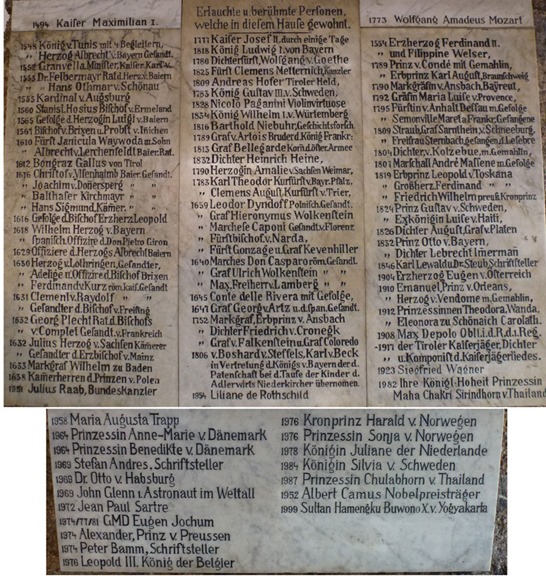 1494 Kaiser Maximilian I.
1548 König v. Tunis mit 4 Begleitern,
" Herzog Albrecht v. Bayern Gesandt.
1552 Granvella, Minister Kaiser Karl V.
1555 Dr. Felbermayr Rat d. Herz. v. Baiern
" Hans Othmar v. Schönau
1555 Kardinal v. Augsburg
1560 Stanisl. Hostus Bischof v. Ermeland
1565 Gefolge d. Herzogin Luigi v. Baiern
1561 Bischof v. Brixen u. Probst v. Inichen
1610 Fürst Janicula Waywoda m. Sohn
" Albrecht v. Lerchenfeldt Baier. Rat.
1612 Bongraz Gallus von Tirol
1616 Christof v. Ylsenhaimb Baier. Gesandt.
" Joachim v. Donersperg "
" Balthaser Kirchmayr "
" Hans Sigmund, Kämer. "
1616 Gefolge d. Bischof Erzherz. Leopold
1618 Wilhelm Herzog v. Bayern
" Spanisch. Offizire d. Don Pietro Giron
1629 Offiziere d. Herzogs Albrecht Baiern
1630 Herzog v. Lothringen, Gesandter,
" Adelige u. Offizire d. Bischof Brixen
" Ferdinand v. Kurz röm. kais. Gesandt
1631 Clement v. Raydolf " "
" Gesandter d. Bischof v. Freising
1632 Georg Plecht Rat d. Bischofs
" v. Complet Gesandt. v. Frankreich
1632 Julius Herzog v. Sachsen Kämerer
" Gesandter d. Erzbischof v. Mainz
1633 Markgraf Wilhelm zu Baden
1638 Kamerherren d. Prinzen v. Polen
1951 Julius Raab, Bundeskanzler
Erlauchte u berühmte Personen,
welche in diesem Hause gewohnt.
1777 Kaiser Josef II. durch einige Tage
1818 König Ludwig I. von Bayern
1786 Dichterfürst, Wolfgang v. Goethe
1825 Fürst Clemens Metternich, Kanzler
1809 Andreas Hofer Tiroler Held,
1785 König Gustav III. v. Schweden,
1828 Nicolo Paganini Violinvirtuose
1834 König Wilhelm I. v. Würtemberg
1816 Barthold Niebuhr, Geschichtsforsch.
1789 Graf v. Artois Bruder d. König Frankr.
1813 Graf Bellegarde
1832 Dichter Heinrich Heine,
1790 Herzogin Amalie v. Sachsen Weimar,
1783 Karl Theodor Kurfürst v. Bayr. Pfalz,
" Clemens August, Kurfürst v. Trier,
1659 Leodor Dyndoff Polnisch. Gesandt.
" Graf Hieronymus Wolkenstein
" Marchese Caponi Gesandt v. Florenz
" Fürstbischof v. Narda,
" Fürst Gonzage u. Graf Kevenhiller
1640 Marches Don Casparo röm. Gesandt.
" Graf Ulrich Wolkenstein " "
" Max, Freiherr v. Lamberg " "
1645 Conte delle Rivera mit Gefolge,
1647 Graf Georg v. Artz u. d. span. Gesandt.
1752 Markgraf, Erbprinz v. Ansbach
" Dichter Friedrich v. Cronegk
" Graf v. Falkenstein u. Graf Coloredo
1806 v. Boshard v. Steffels, Karl v. Beck
in Vertretung d. Königs v. Bayern der d.
Patenschaft bei d. Taufe der Kinder d.
Adlerwirts Niederkircher übernomen.
1954 Liliane de Rothschild
1773 Wolfgang Amadeus Mozart
1554 Erzherzog Ferdinand II.
" und Filippine Welser,
1789 Prinz v. Condé mit Gemahlin,
" Erbprinz Karl August, Braunschweig
1790 Markgräfin v. Ansbach, Bayreut,
1792 Gräfin Maria Luise v. Provence,
1795 Fürstin v. Anhalt Dessau m. Gefolge
" Semonville Maret a. Frankr. Gefangene
1809 Straub, Graf Sarnthein v. Schneeburg,
" Freifrau Sternbach, gefangen d. Lefebre
1804 Dichter, v. Kotzebue, m. Gemahlin,
1801 Marschall André Massene m. Gefolge
1819 Erbprinz Leopold v. Toskana
" Großherz. Ferdinand " "
" Friedrich Wilhelm preuß. Kronprinz
1824 Prinz Gustav v. Schweden,
" Exkönigin Luise v. Haiti,
1826 Dichter August, Graf v. Platen
1832 Prinz Otto v. Bayern,
" Dichter Lebrecht Imerman
1846 Karl Lewald u. Dr. Steub, Schriftsteller
1904 Erzherzog Eugen v. Österreich
1910 Emanuel, Prinz v. Orleans,
" Herzog v. Vendome m. Gemahlin,
1912 Prinzessinnen Theodora, Wanda,
" Eleonora zu Schönaich Carolath.
1908 Max Depolo Obll. i. d. R. d. 1. Reg.
1911 der Tiroler Kaiserjäger, Dichter
" u. Komponist d. Kaiserjägerliedes.
1923 Siegfried Wagner
1982 Ihre Königl. Hoheit Prinzessin
Maha Chakri Sirindhorn v. Thailand
1958 Maria Augusta Trapp
1964 Prinzessin Anne-Marie v. Dänemark
1964 Prinzessin Benedikte v. Dänemark
1969 Stefan Andres, Schriftsteller
1969 Dr. Otto v. Habsburg
1969 John Glenn 1. Astronaut im Weltall
1972 Jean Paul Sartre
1974/77/81 GMD Eugen Jochum
1974 Alexander, Prinz v. Preussen
1974 Peter Bamm, Schriftsteller
1976 Leopold III. König der Belgier
1976 Kronprinz Harald v. Norwegen
1976 Prinzessin Sonja v. Norwegen
1978 Königin Juliane der Niederlande
1984 Königin Silvia v. Schweden
1987 Prinzessin Chulabhorn v. Thailand
1952 Albert Camus Nobelpreisträger
1999 Sultan Hamengku Buwono X. v. Yogyakarta